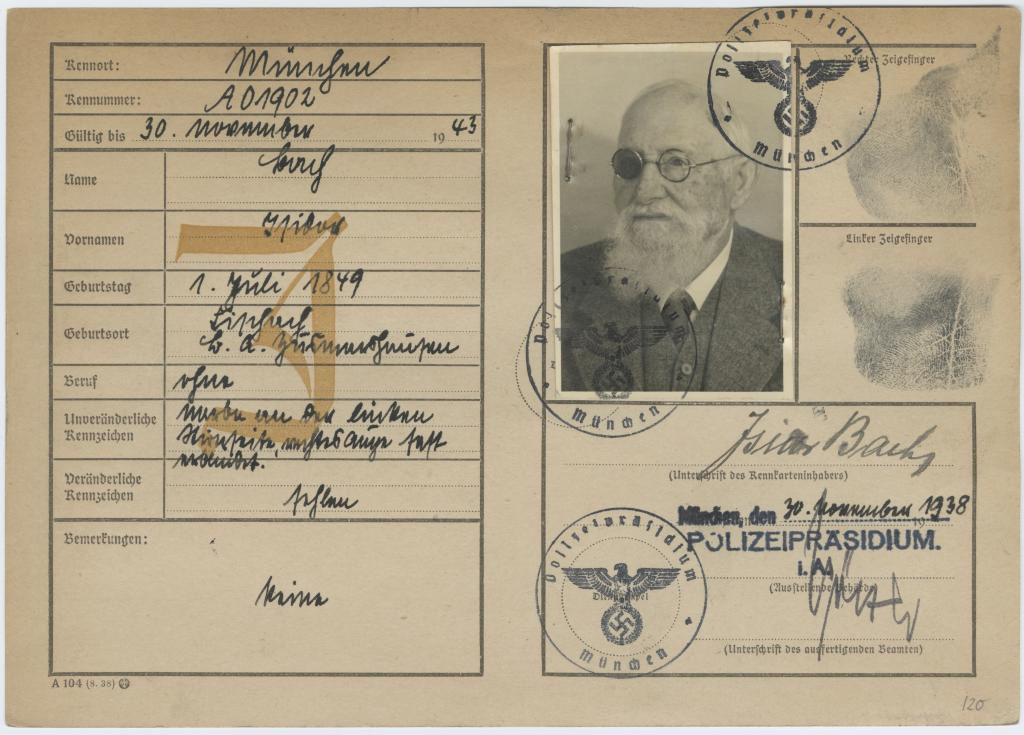 Kennort: München
Kennummer: A 01902
Gültig bis 30. November 1943
Name Bach
Vornamen Isidor
Geburtstag 1. Juli 1849
Geburtsort Fischach
B. A. Zusmarshausen
Beruf ohne
Unveränderliche Kennzeichen Narbe an der linken
Stirnseite, rechtes Auge fast
erblindet.
Veränderliche Kennzeichen fehlen
Bemerkungen:
keine
A 104 (8. 38)
J
Polizeipräsidium
München
Rechter Zeigefinger
Linker Zeigefinger
Polizeipräsidium
München
Isidor Bach
(Unterschrift des Kennkarteninhabers)
München, den 30. November 1938
POLIZEIPRÄSIDIUM.
i. A.
(Ausstellende Behörde)
Polizeipräsidium
Dienststempel
München
(Unterschrift des ausfertigenden Beamten)
120